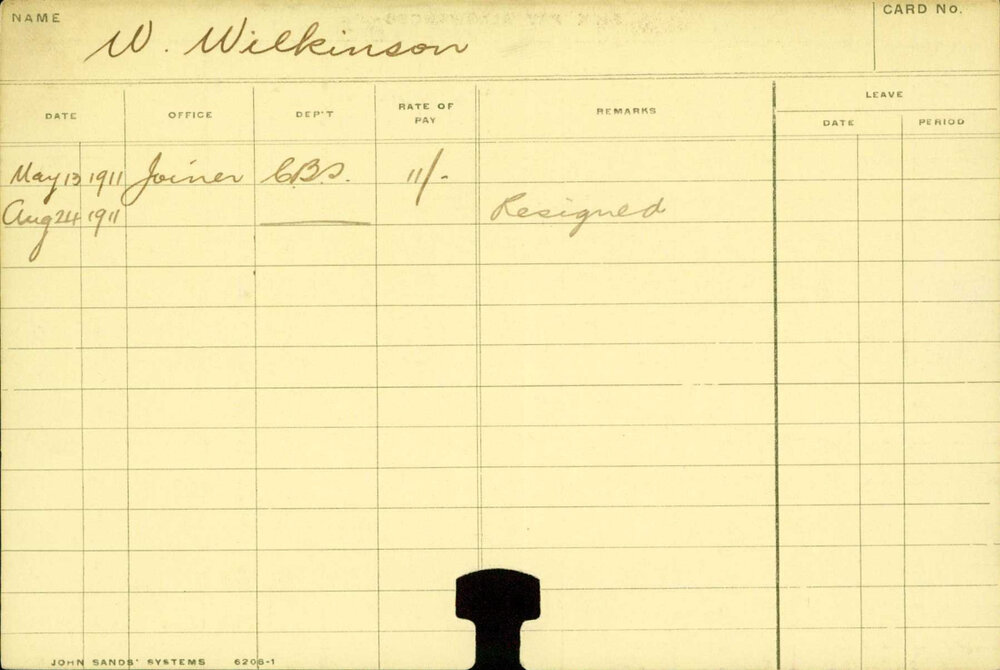 NAME
W. Wilkinson
CARD No.
DATE OFFICE DEP'T RATE OF PAY REMARKS LEAVE
DATE PERIOD
May 13 1911 Joiner C.B.S. 11/-
Aug 24 1911 Resigned
JOHN SANDS' SYSTEMS 6206-1